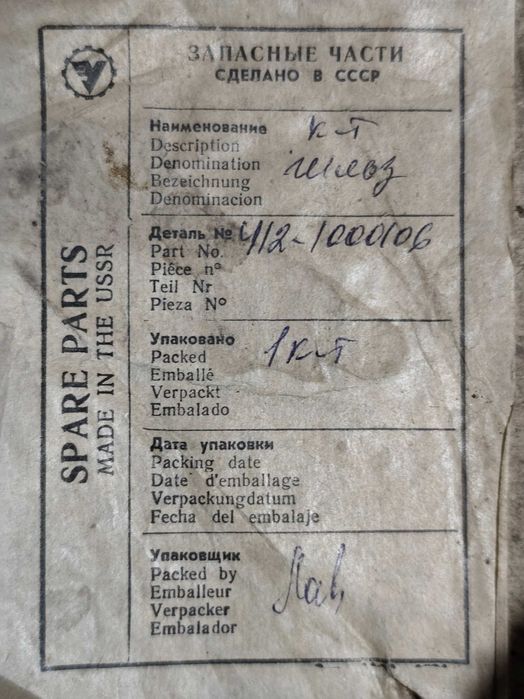 ЗАПАСНЫЕ ЧАСТИ
СДЕЛАНО В СССР
SPARE PARTS
MADE IN THE USSR
Наименование К-Т
Description
Denomination
Bezeichnung
Denominacion
Деталь № 412-1000106
Part No.
Piéce n°
Teil Nr
Pieza N°
Упаковано 1 к-т
Packed
Emballé
Verpackt
Embalado
Дата упаковки
Packing date
Date d'emballage
Verpackungdatum
Fecha del embalaje
Упаковщик
Packed by
Emballeur
Verpacker
Embalador